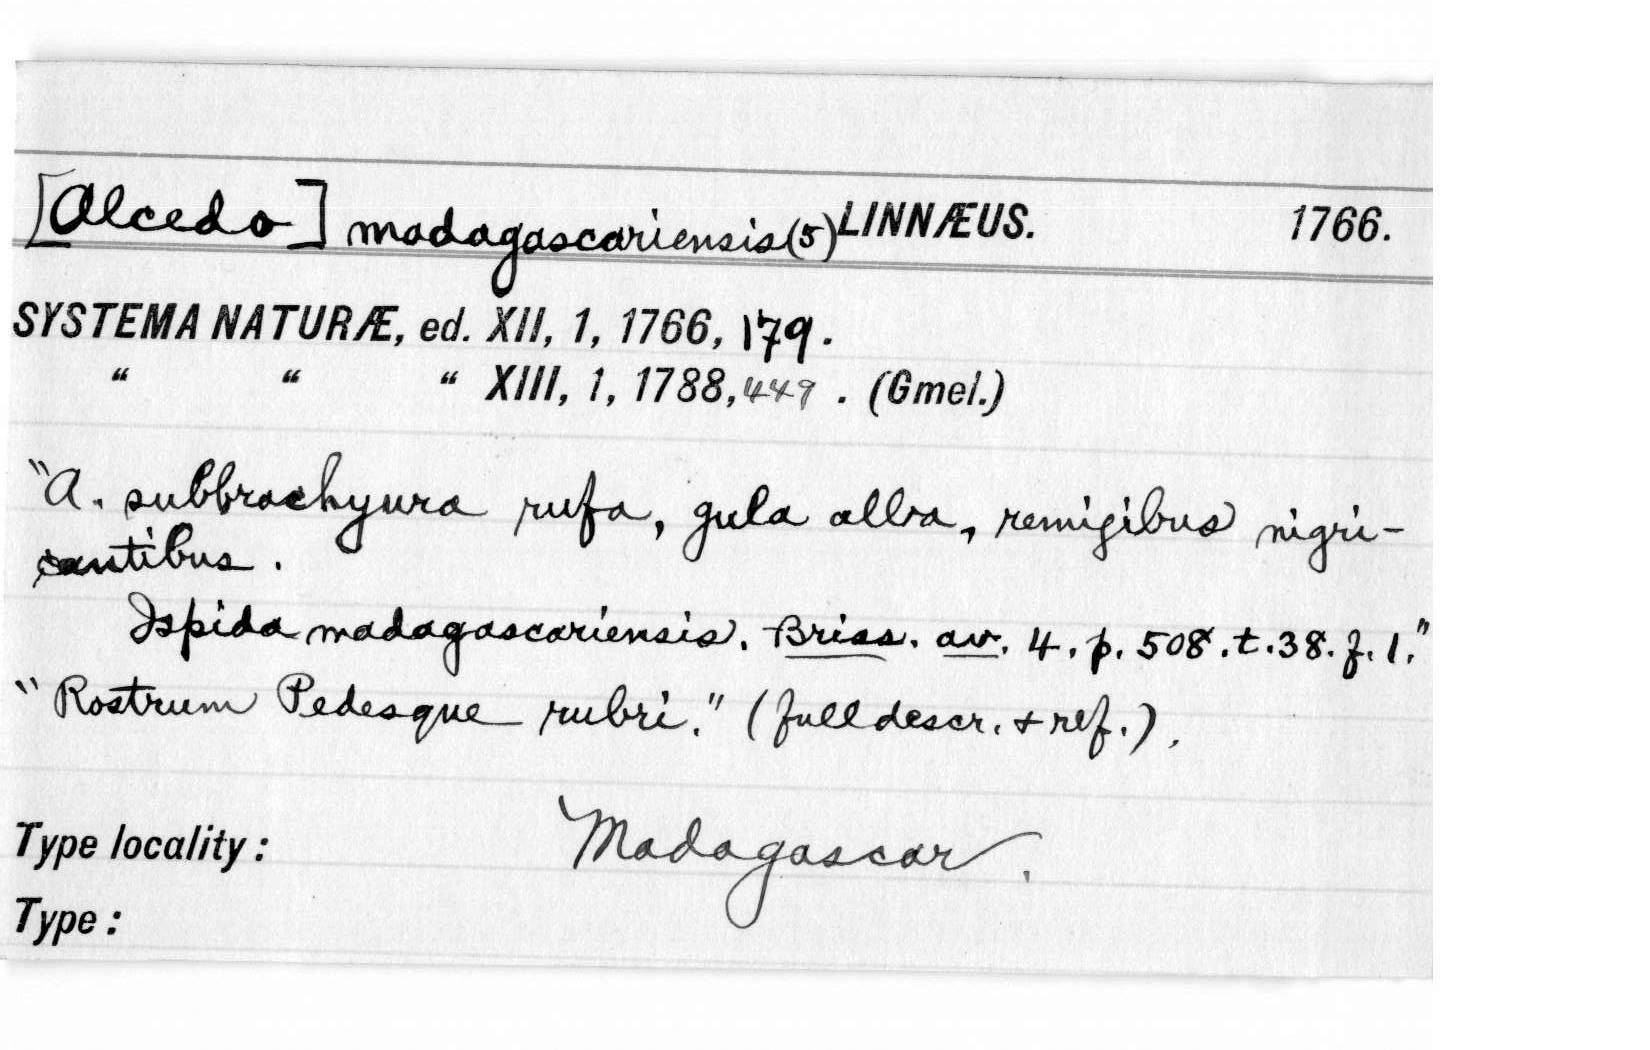 [Alcedo] madagascariensis (5) LINNÆUS. 1766.
SYSTEMA NATURÆ, ed. XII, 1, 1766, 179.
“ “ “ XIII, 1, 1788, 449. (Gmel.)
"A. subbrachyura rufa, gula alba, remigibus nigri-
cantibus.
Ispida madagascariensis. Briss. av. 4. p. 508. t. 38. f. 1."
"Rostrum Pedesque rubri." (full descr. + ref.).
Type locality: Madagascar.
Type: